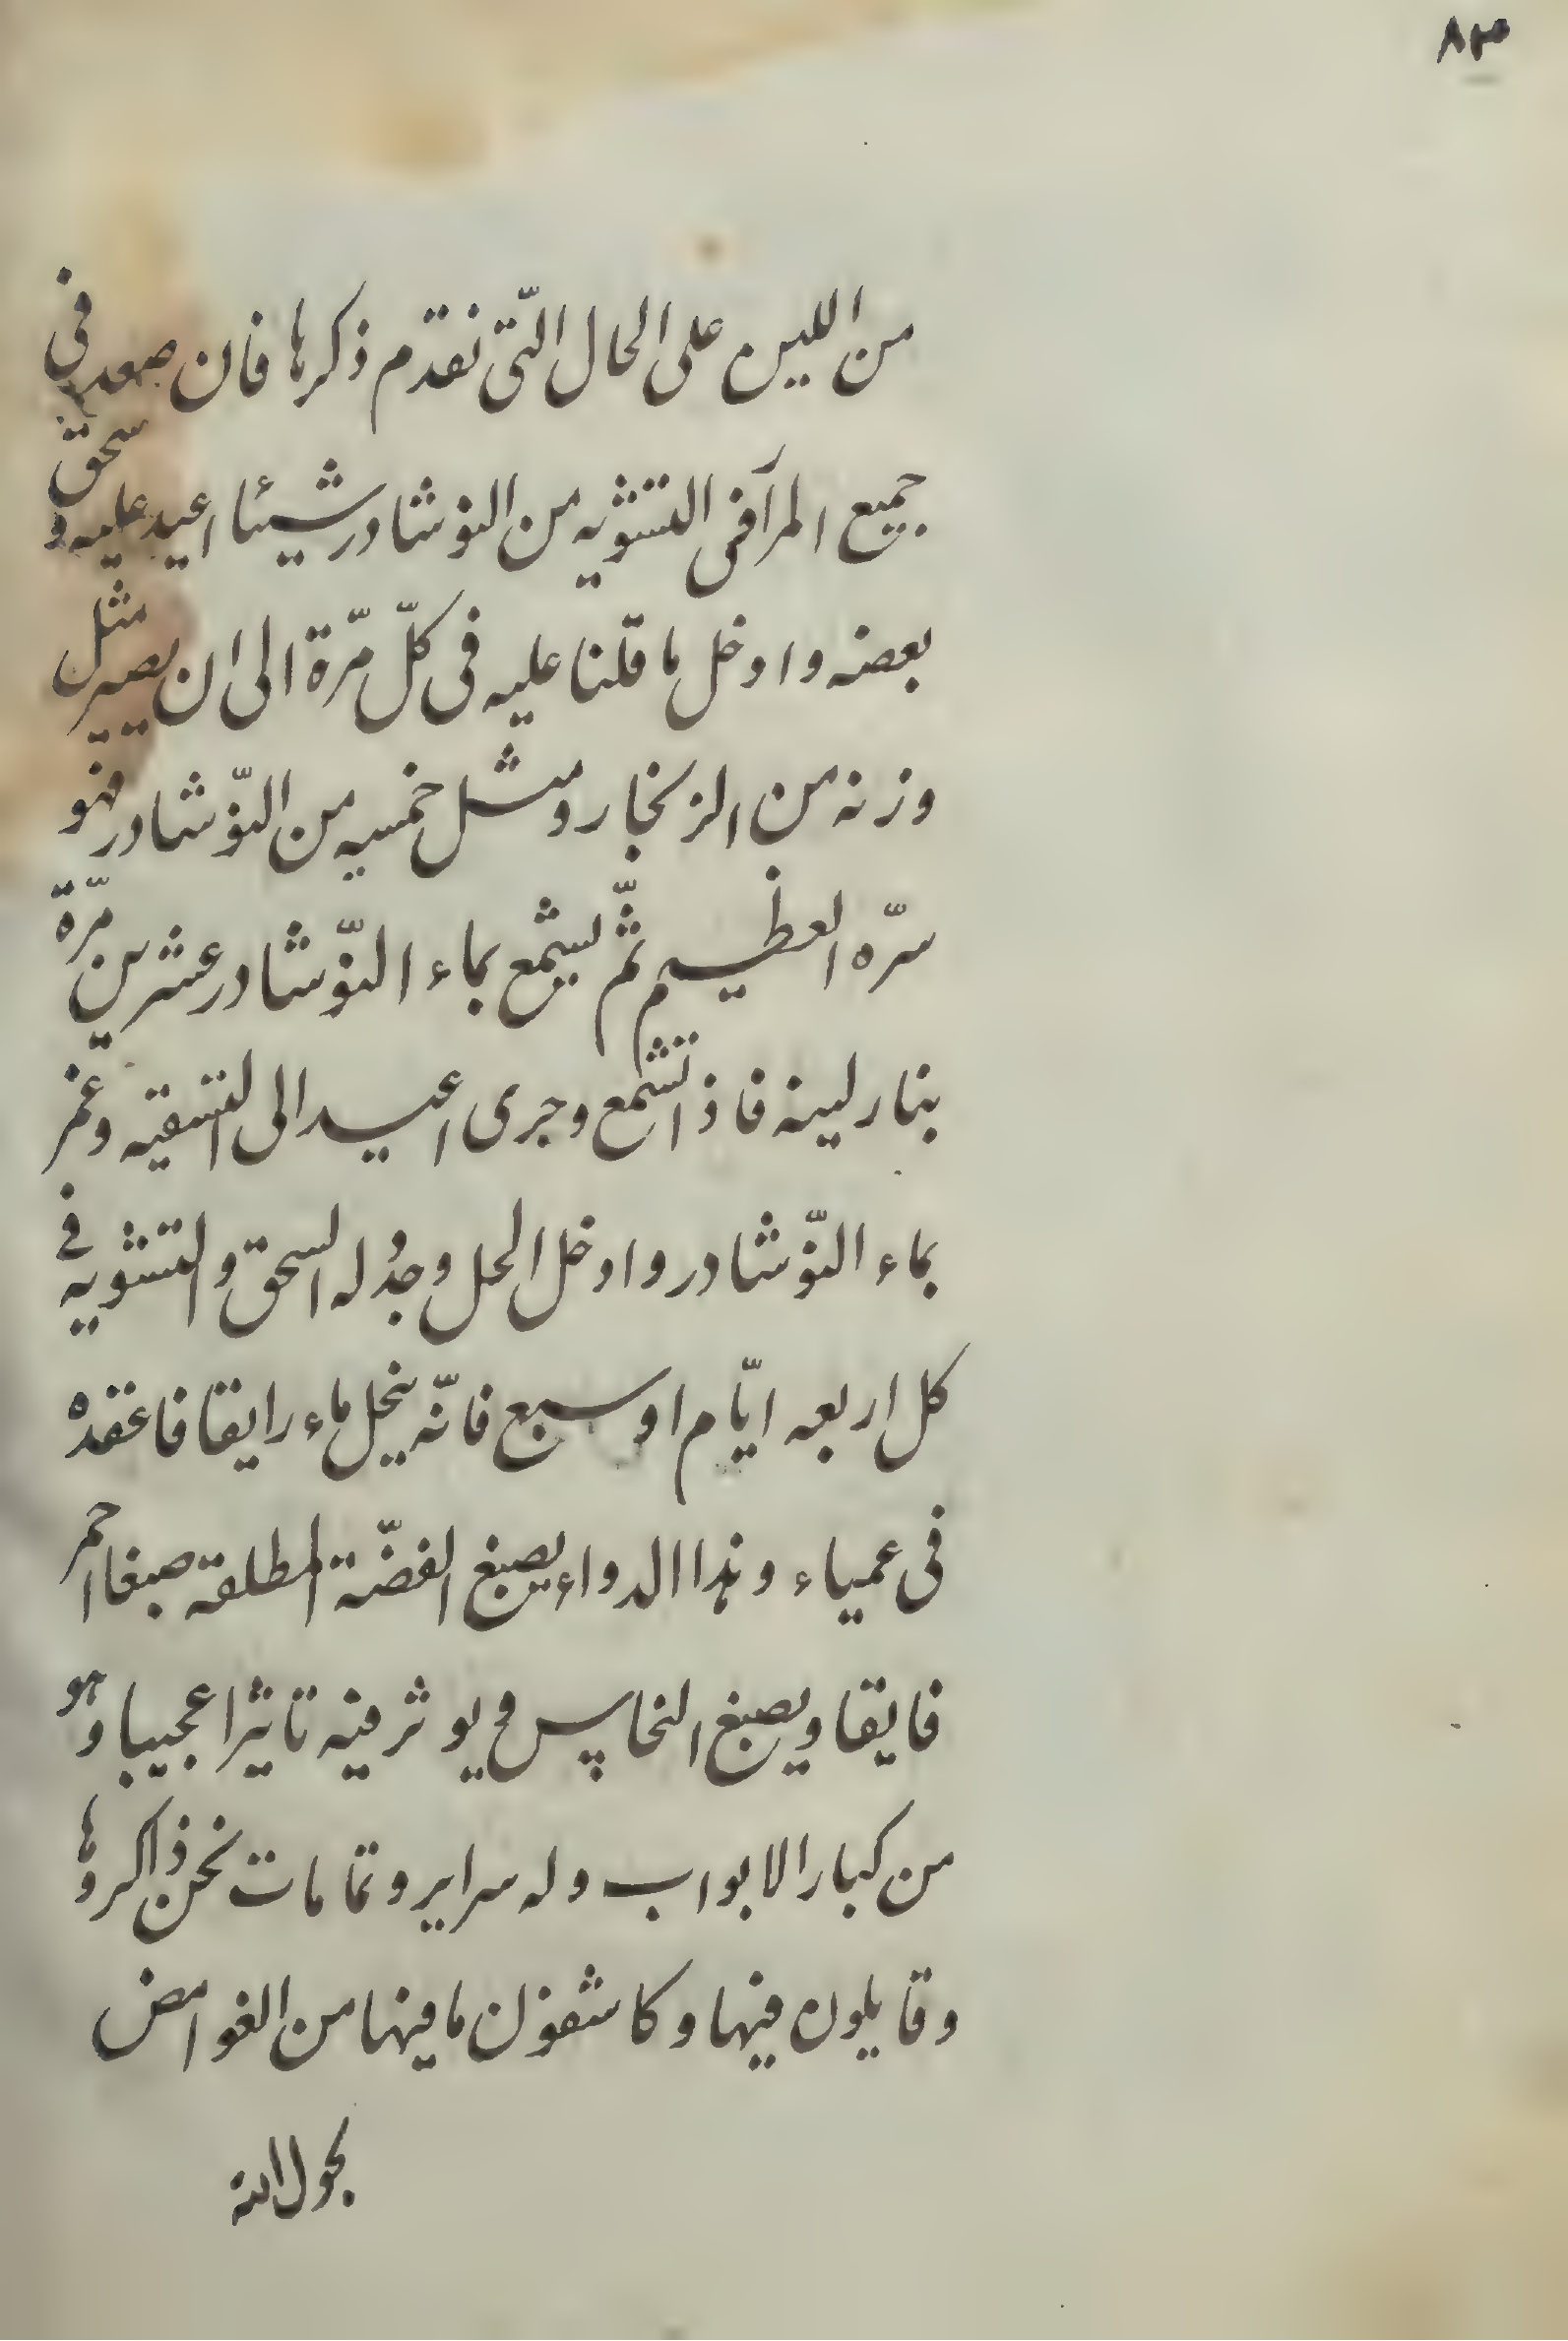 ٨٣
من اللين على الحال التّى تقدم ذكرها فان صعد فى
جميع المرآفى التشويه من النوشادر شيئا اعيد عليه و سحق
بعضه وادخل ما قلنا عليه فى كلّ مّرة الى ان يصير مثل
وزنه من الزنجار ومثل خمسيه من النّوشادر فهو
سرّه العظيم ثمّ يشمع بماء النّوشادر عشرين مّرة
بنار لينه فاذا تشمع وجرى اعيد الى التسقيه وغمر
بماء النّوشادر وادخل الحل وجدُ له السحق والتشويه فى
كل اربعه ايّام او سبع فانّه ينحل ماء رايقا فاعقده
فى عمياء وهذا الدواء يصبغ الفضّة المطلقه صبغا احمر
فايقا ويصبغ النحاس ويوثر فيه تاثيرا عجيبا وهو
من كبار الابواب وله سراير وتمامات نحن ذاكروها
وقايلون فيها وكاشفون ما فيها من الغوامض
بحول الله